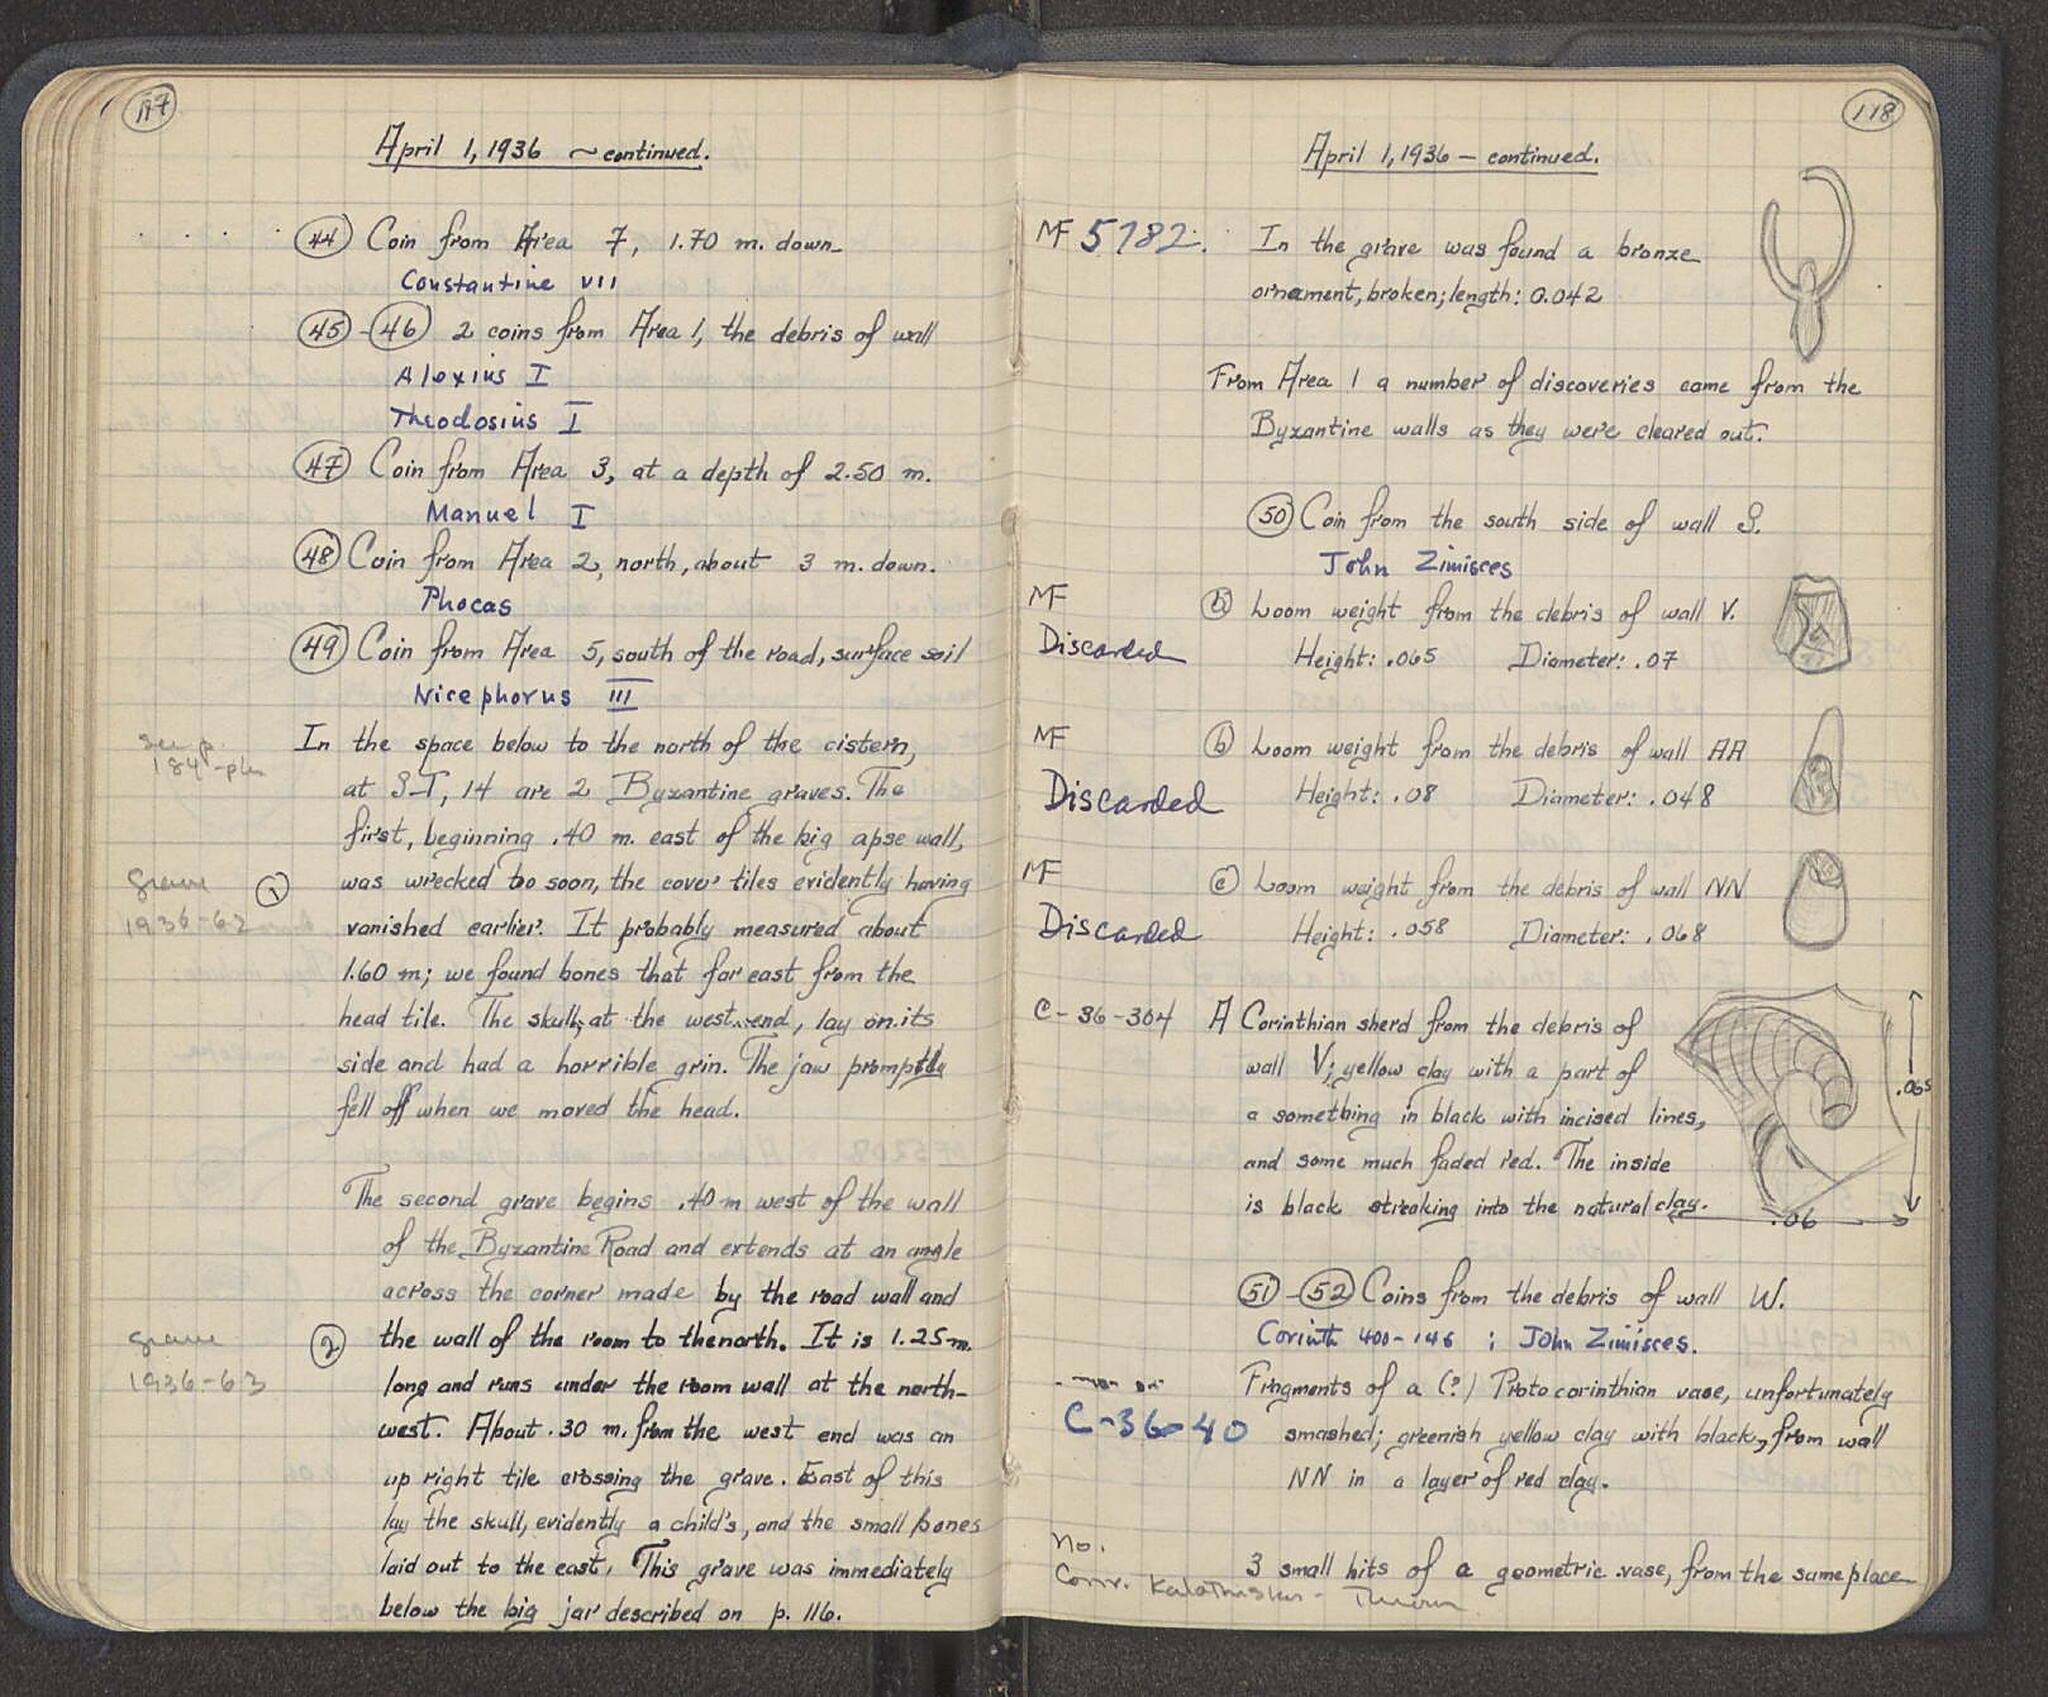 117
April 1, 1936 ~ continued.
44 Coin from Area 7, 1.70 m. down.
Constantine VII
45 - 46 2 coins from Area 1, the debris of wall
Alexius I
Theodosius I
47 Coin from Area 3, at a depth of 2.50 m.
Manuel I
48 Coin from Area 2, north, about 3 m. down.
Phocas
49 Coin from Area 5, south of the road, surface soil
Nicephorus III
In the space below to the north of the cistern,
see p.
184
at S-T, 14 are 2 Byzantine graves. The
first, beginning .40 m. east of the big apse wall,
grave 1 was wrecked too soon, the cover tiles evidently having
1936-62 vanished earlier. It probably measured about
1.60 m; we found bones that far east from the
head tile. The skull, at the west end, lay on its
side and had a horrible grin. The jaw promptly
fell off when we moved the head.
The second grave begins .40 m west of the wall
of the Byzantine Road and extends at an angle
across the corner made by the road wall and
grave 2 the wall of the room to the north. It is 1.25 m.
1936-63 long and runs under the room wall at the north-
west. About .30 m. from the west end was an
up right tile crossing the grave. East of this
lay the skull, evidently a child's, and the small bones
laid out to the east. This grave was immediately
below the big jar described on p. 116.
118
April 1, 1936 - continued.
MF 5782. In the grave was found a bronze
ornament, broken; length: 0.042
From Area 1 a number of discoveries came from the
Byzantine walls as they were cleared out.
50 Coin from the south side of wall S.
John Zimisces
MF a Loom weight from the debris of wall V.
Discarded Height: .065 Diameter: .07
MF b Loom weight from the debris of wall AA
Discarded Height: .08 Diameter: .048
MF c Loom weight from the debris of wall NN
Discarded Height: .058 Diameter: .068
C-36-304 A Corinthian sherd from the debris of
wall V; yellow clay with a part of
.065
a something in black with incised lines,
and some much faded red. The inside
is black streaking into the natural clay.
.06
51 - 52 Coins from the debris of wall W.
Corinth 400-146 ; John Zimisces.
Fragments of a (?) Protocorinthian vase, unfortunately
C-36-40 smashed; greenish yellow clay with black, from wall
NN in a layer of red clay.
No.
3 small bits of a geometric vase, from the same place
Conv. Kalathiskos -